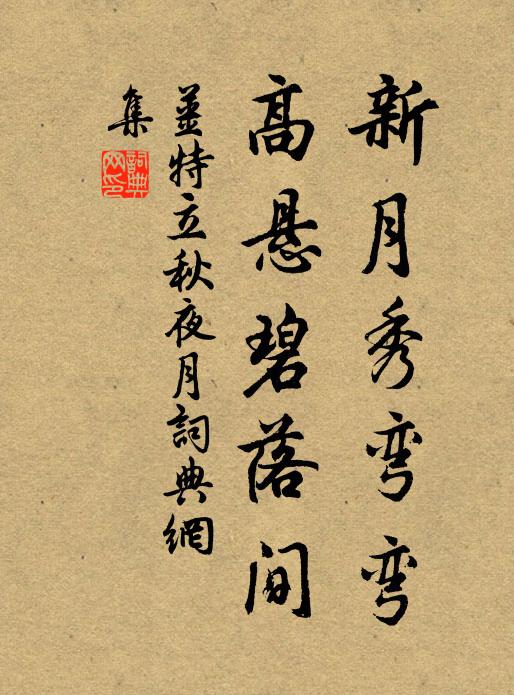 新月秀弯弯
高悬碧落间
姜特立秋夜月詞典網
集
詞典
网印